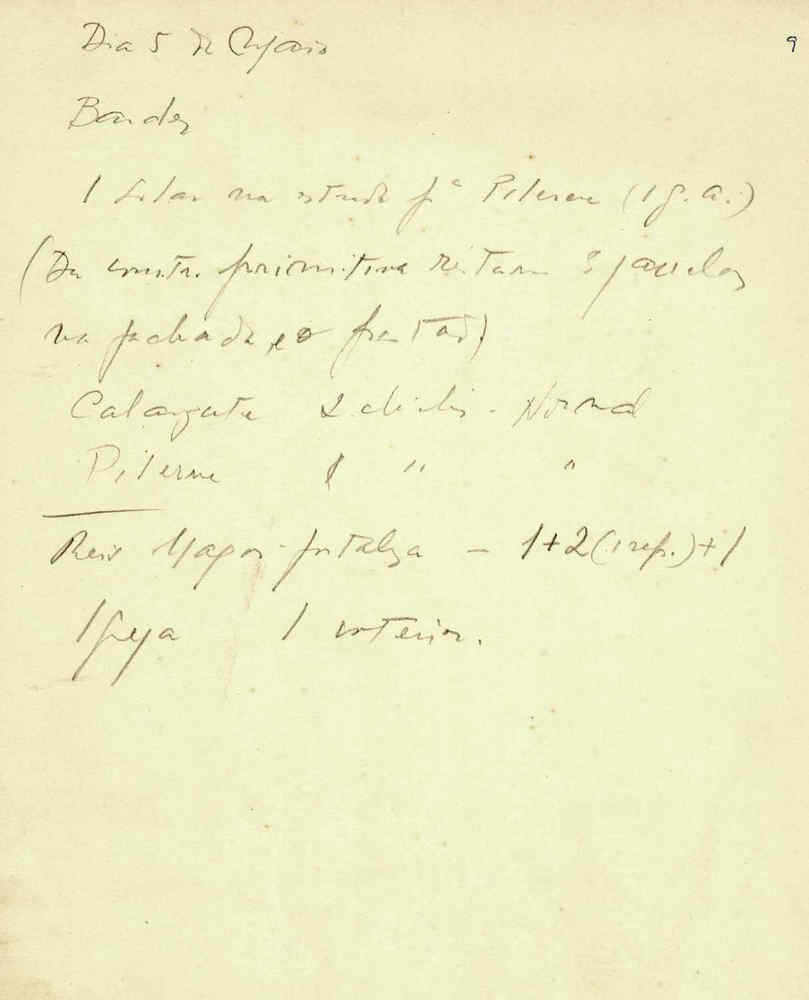 9
Dia 5 de Maio
Bardez
1 Solar na estrada pª Pilerne (1 g. a.)
(Da constr. primitiva restam 3 janelas
na fachada, e o frontão)
Calangute 2 clichés - Normal
Pilerne 1 " "
Reis Magos - fortaleza - 1+2 (1 rep.) + 1
Igreja 1 interior.